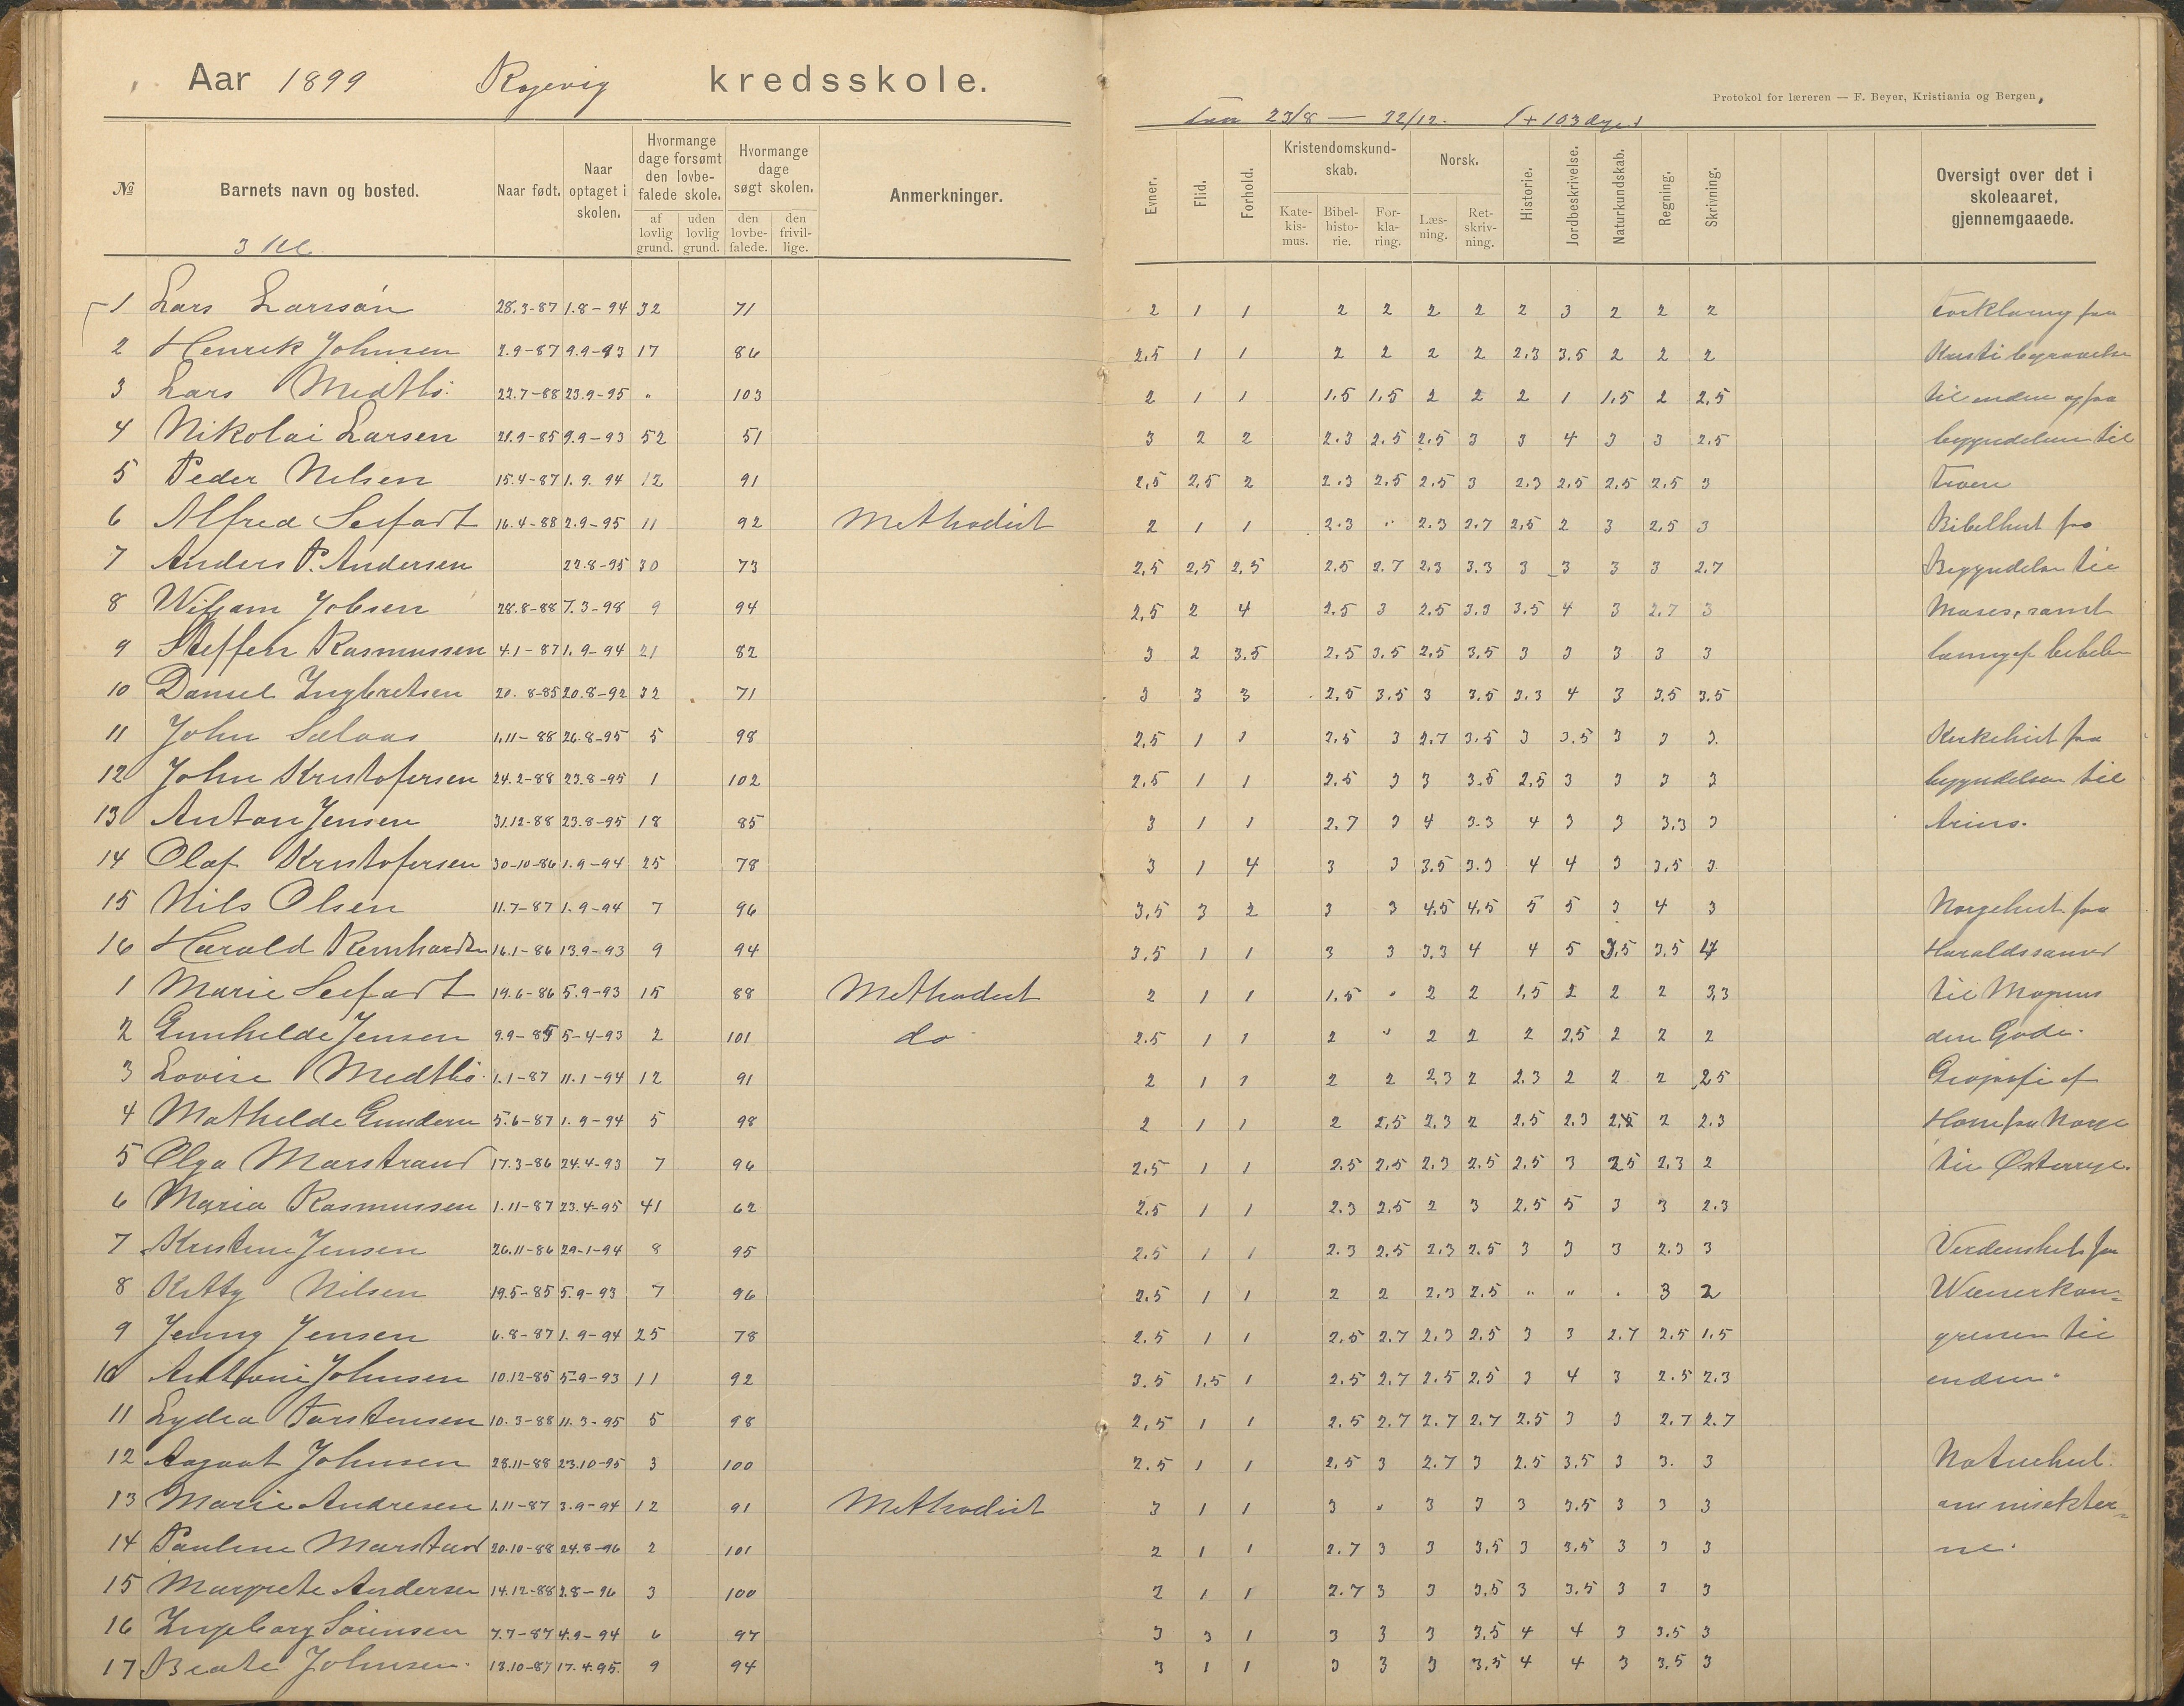 Aar 1899 Røjevig kredsskole.
Protokol for læreren — F. Beyer, Kristiania og Bergen.
Fra 23/8 — 22/12. 103 dage
№ Barnets navn og bosted. Naar født. Naar optaget i skolen. Hvormange dage forsømt den lovbefalede skole. af lovlig grund. uden lovlig grund. Hvormange dage søgt skolen. den lovbefalede. den frivillige. Anmerkninger. Evner. Flid. Forhold. Kristendomskundskab. Katekismus. Bibelhistorie. Forklaring. Norsk. Læsning. Retskrivning. Historie. Jordbeskrivelse. Naturkundskab. Regning. Skrivning. Oversigt over det i skoleaaret, gjennemgaaede.
3 Kl
1 Lars Larssøn 28.3-87 1.8-94 32 71 2 1 1 2 2 2 2 2 3 2 2 2 Forklaring fra
2 Henrik Johnsen 2.9-87 9.9-93 17 86 2,5 1 1 2 2 2 2 2,3 3.5 2 2 2 Kristi begravelse
3 Lars Medtbö 22.7-88 23.9-95 " 103 2 1 1 1.5 1,5 2 2 2 1 1,5 2 2,5 til enden og fra
4 Nikolai Larsen 28.9-85 9.9-93 52 51 3 2 2 2.3 2.5 2,5 3 3 4 3 3 2.5 begyndelsen til
5 Peder Nilsen 15.4-87 1.9.94 12 91 2,5 2,5 2 2.3 2,5 2.5 3 2,3 2,5 2,5 2,5 3 troen
6 Alfred Seefart 16.4-88 2.9-95 11 92 Methodist 2 1 1 2.3 " 2.3 2.7 2,5 2 3 2,5 3 Bibelhist fra
7 Anders P. Andersen 22.8-95 30 73 2,5 2,5 2,5 2.5 2.7 2,3 3.3 3 3 3 3 2.7 Begyndelsen til
8 Wiljam Jobsen 28.8-88 7.3-98 9 94 2,5 2 4 2.5 3 2.5 3.3 3.5 4 3 2.7 3 Moses, samt
9 Steffen Rasmussen 4.1-87 1.9-94 21 82 3 2 3.5 2.5 3.5 2,5 3,5 3 3 3 3 3 læsning af bibelen
10 Daniel Ingbretsen 20.8-85 20.8-92 32 71 3 3 3 2,5 3.5 3 3.5 3.3 4 3 3.5 3.5
11 John Salvas 1.11-88 26.8-95 5 98 2,5 1 1 2,5 3 2,7 3.5 3 3.5 3 3 3. Kirkehist fra
12 John Kristofersen 24.2-88 23.8-95 1 102 2,5 1 1 2.5 3 3 3.5 2,5 3 3 3 3 begyndelsen til
13 Anton Jensen 31.12-88 23.8-95 18 85 3 1 1 2.7 3 4 3.3 4 3 3 3.3 3 Arius.
14 Olaf Kristofersen 30-10-86 1.9-94 25 78 3 1 4 3 3 3.5 3.3 4 4 3 3.5 3
15 Nils Olsen 11.7-87 1.9-94 7 96 3,5 3 2 3 3 4,5 4,5 5 5 3 4 3 Norgehist fra
16 Harald Reinhardsen 16.1-86 13.9-93 9 94 3.5 1 1 3 3 3,3 4 4 5 3,5 3.5 4 Haraldssønner
1 Marie Seefart 19.6-86 5.9-93 15 88 Methodist 2 1 1 1.5 " 2 2 1,5 2 2 2 3,3 til Magnus
2 Gunhilde Jensen 9.9-85 5-4-93 2 101 do 2.5 1 1 2 " 2 2 2 2,5 2 2 2 den Gode.
3 Lovise Medtbö 1.1-87 11.1-94 12 91 2 1 1 2 2 2,3 2 2.3 2 2 2 2,5 Geografi af
4 Mathilde Gundersen 5.6-87 1.9-94 5 98 2 1 1 2 2,5 2,3 2 2.5 2.3 2,5 2 2.3 Horn fra Norge
5 Olga Marstrand 17.3-86 24.4-93 7 96 2.5 1 1 2.5 2,5 2,3 2.5 2,5 3 2,5 2,3 2 til Østerrige.
6 Maria Rasmussen 1.11-87 23.4-95 41 62 2,5 1 1 2.3 2,5 2 3 2,5 5 3 3 2.3
7 Kristine Jensen 26.11-86 29-1-94 8 95 2.5 1 1 2.3 2.5 2,3 2.5 3 3 3 2.3 3 Verdenshist fra
8 Kitty Nilsen 19.5-85 5.9-93 7 96 2.5 1 1 2 2 2,3 2.5 " " . 3 2 Wienerkon-
9 Jenny Jensen 6.8-87 1.9-94 25 78 2.5 1 1 2.5 2.7 2,3 2,5 3 3 2.7 2.5 1.5 gressen til
10 Anthonie Johnsen 10.12-85 5-9-93 11 92 3.5 1,5 1 2.5 2,7 2.5 2,5 3 4 3 2.5 2.3 enden.
11 Lydia Torstensen 10.3-88 11.3-95 5 98 2,5 1 1 2.5 2.7 2.7 2.7 2.5 3 3 2.7 2.7
12 Aagaat Johnsen 28.11-88 23.10-95 3 100 2.5 1 1 2,5 3 2.7 3 2.5 3.5 3 3. 3 Naturhist.
13 Marie Andresen 1.11-87 3.9-94 12 91 Methodist 3 1 1 3 " 3 3 3 3.5 3 3 3 om insekter-
14 Pauline Marstrand 20.10-88 24.8-96 2 101 2 1 1 2.7 3 3 3,5 3 3.5 3 3 3 ne.
15 Margrete Andersen 14.12-88 2.8-96 3 100 2 1 1 2.7 3 3 3,5 3 3.5 3 3 3
16 Ingeborg Sörensen 7.7-87 4.9-94 6 97 3 3 1 3 3 3 3,5 4 4 3 3.5 3
17 Beate Johnsen. 13.10-87 17.4.95. 9 94 3 1 1 3 3 3 3,5 4 4 3 3,5 3